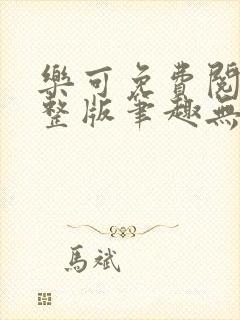 樂可免費閱
整版筆趣無
馬斌